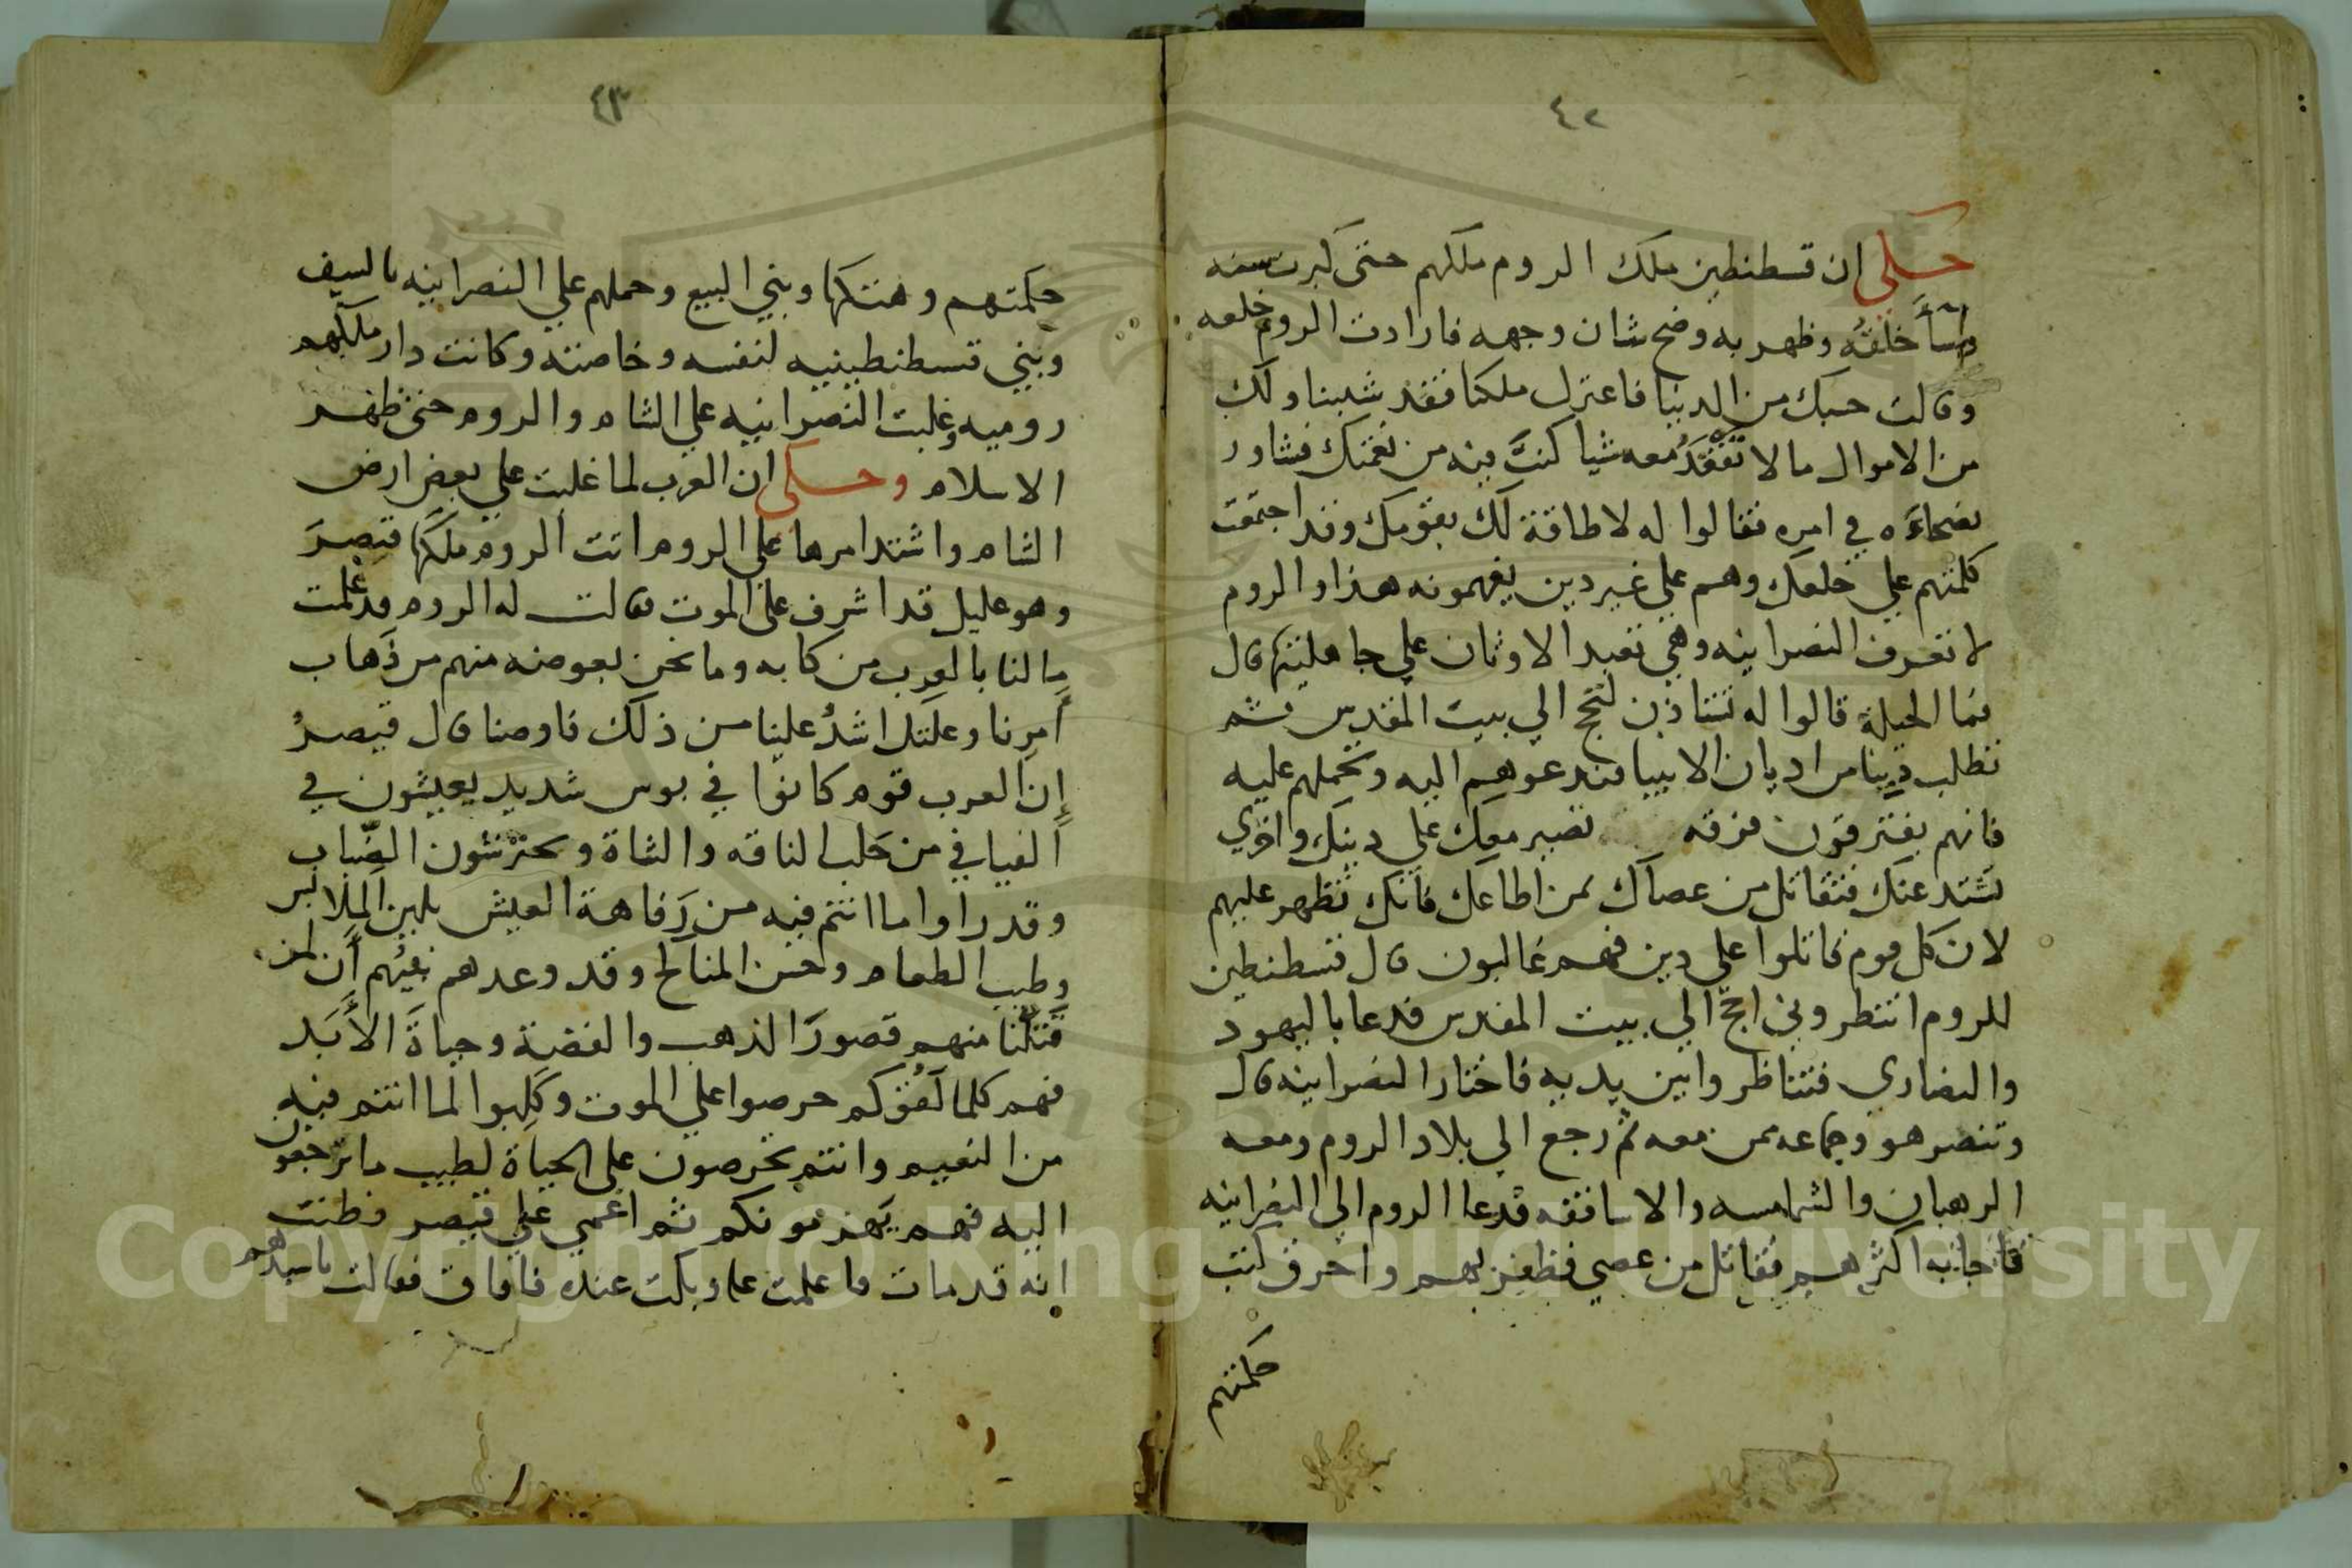 ٤٢
حكي ان قسطنطين ملك الروم ملكهم حتى كبرت سنه
وسأ خلقه وظهر به وضح شان وجهه فارادت الروم خلعه
وقالت حسبك من الدنيا فاعتزل ملكنا فقد شبنا ولك
من الاموال مالا تفقد معه شيا كنت فيه من نعمتك فشاور
نصحاءه في امره فقالوا له لا طاقة لك بقومك وقد اجتمعت
كلمتهم علي خلعك وهم علي غير دين يفهمونه هذا والروم
لا تعرف النصرانيه وهي تعبد الاوثان علي جاهليتها قال
فما الحيلة قالوا له تستاذن لتحج الي بيت المقدس ثم
تطلب دينا من اديان الانبيا فتدعوهم اليه وتحملهم عليه
فانهم يفترقون فرقه تصير معك علي دينك واخري
تشتد عنك فتقاتل من عصاك بمن اطاعك فانك تظهر عليهم
لان كل قوم قاتلوا علي دين فهم غالبون قال قسطنطين
للروم انتظروني احج الي بيت المقدس فدعا باليهود
والنصاري فتناظروا بين يديه فاختار النصرانيه قال
وتنصر هو وجماعه ممن معه ثم رجع الي بلاد الروم ومعه
الرهبان والشمامسه والاساقفه فدعا الروم الي النصرانيه
فاجابه اكثرهم فقاتل من عصي فظفر بهم واحرق كتب
حكمتهم
٤٣
حكمتهم وهتكها وبني البيع وحملهم علي النصرانيه بالسيف
وبني قسطنطينيه لنفسه وخاصته وكانت دار ملكهم
روميه وغلبت النصرانيه علي الشام والروم حتى ظهر
الاسلام وحكي ان العرب لما غلبت علي بعض ارض
الشام واشتد امرها على الروم اتت الروم ملكها قيصر
وهو عليل قد اشرف على الموت فقالت له الروم قد علمت
ما لنا بالعرب من كابه وما نحن بعرضه منهم من ذهاب
أمرنا وعلتك اشد علينا من ذلك فاوصنا قال قيصر
إن العرب قوم كانوا في بوس شديد يعيشون في
الفيافي من حلب الناقه والشاة ويحترشون الضباب
وقد راوا ما انتم فيه من رفاهة العيش بلين الملابس
وطيب الطعام وحسن المناكح وقد وعدهم نبيهم أن لمن
قتلنا منهم قصور الذهب والفضة وحياة الأبد
فهم كلما لقوكم حرصوا علي الموت وكلبوا لما انتم فيه
من النعيم وانتم تحرصون على الحياة لطيب ما ترجعون
اليه فهم يهزمونكم ثم اغمي على قيصر فظنت
انه قد مات فاعلمت وبكت عنده فافاق فقالت ما سيدهم